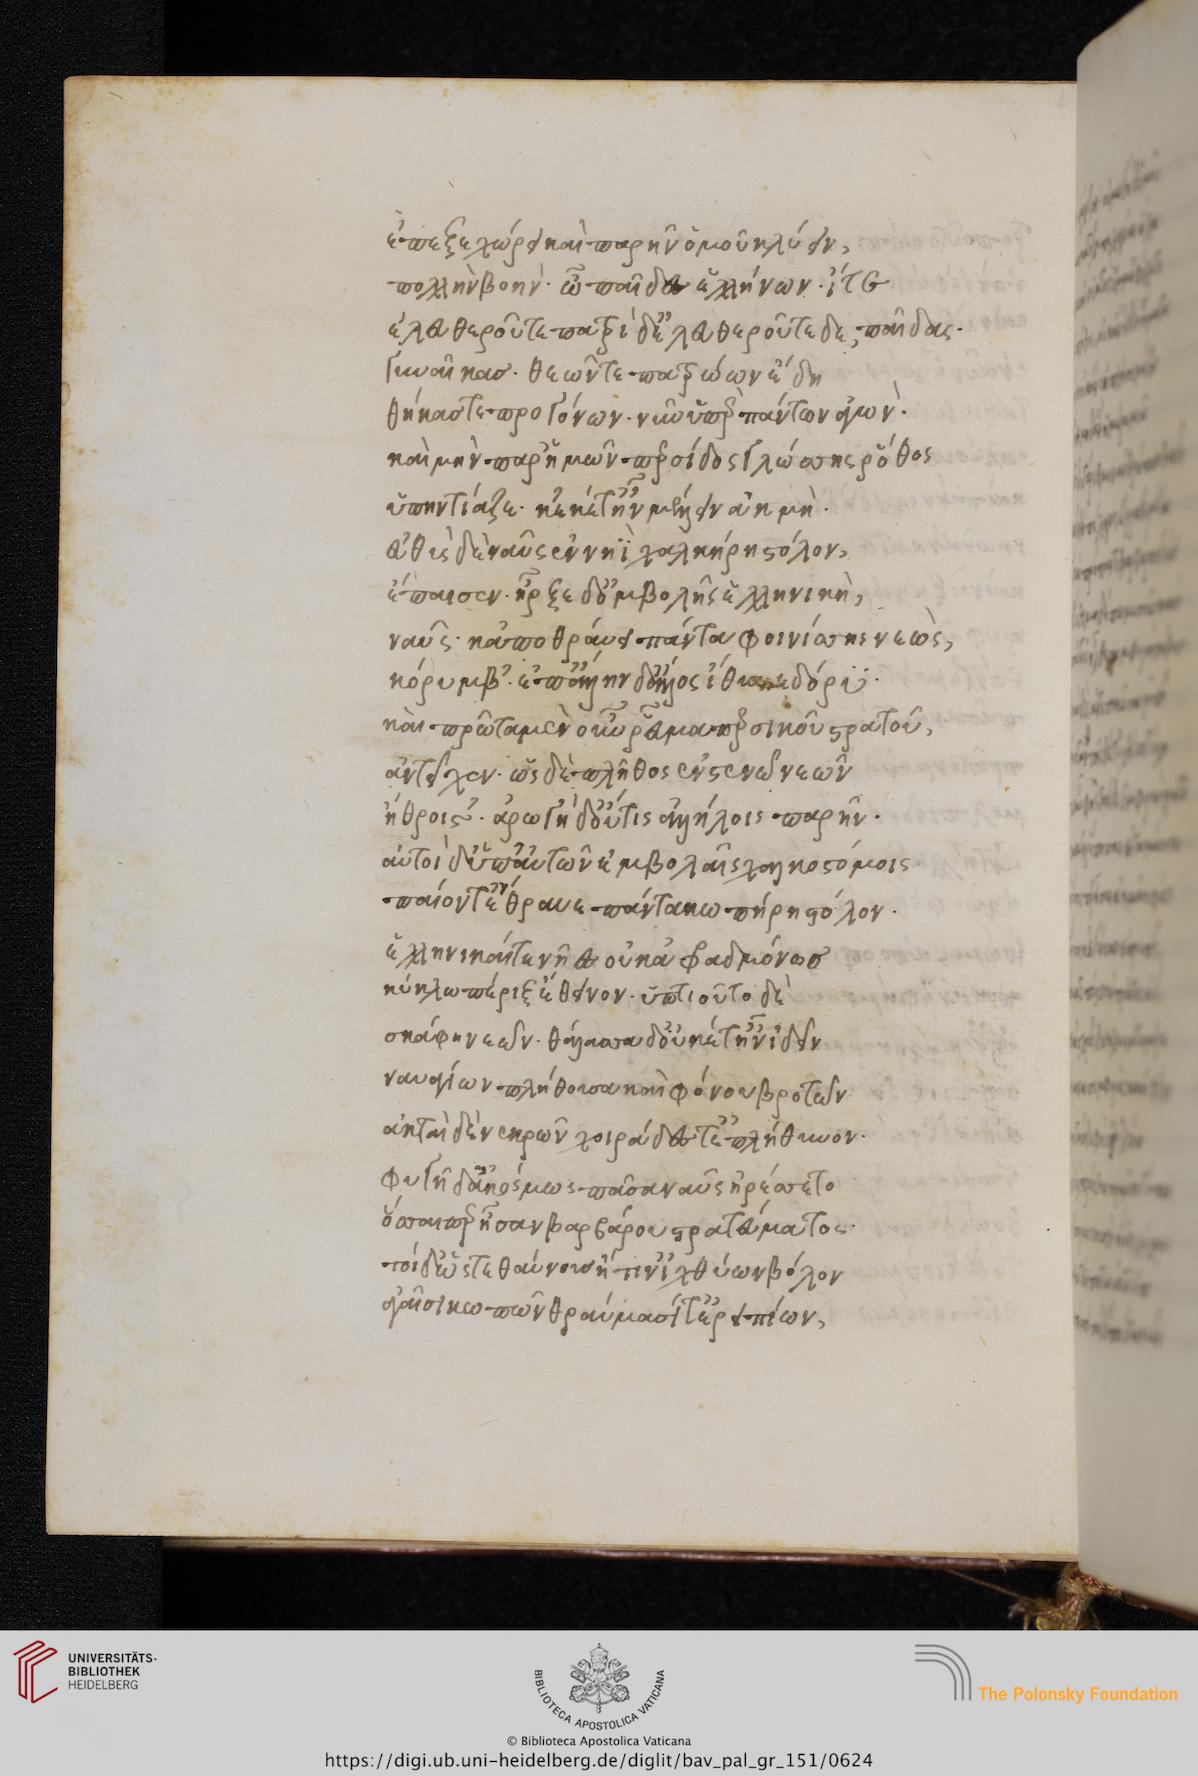 ἐπεξεχώρει καὶ παρῆν ὁμοῦ κλύειν,
πολλὴν βοήν· ὦ παῖδες ἑλλήνων· ἴτε
ἐλευθεροῦτε πατρίδ' ἐλευθεροῦτε δε, παῖδας·
γυναῖκασ· θεῶν τε πατρώων ἕδη
θήκας τε προγόνων· νῦν ὑπὲρ πάντων ἀγων·
καὶ μὴν παρ' ἡμῶν περσίδος γλώσσης ῥόθος
ὑπηντίαζε· κ' οὐκέτ' ἦν μέλλειν ἀκμὴ·
εὐθὺς δὲ ναῦς ἐν νηῒ χαλκήρη στόλον,
ἔπαισεν· ἦρξε δ' ἐμβολῆς ἑλληνικὴ,
ναῦς· κἀποθραύει πάντα φοινίσσης νεὼς,
κόρυμβ'· ἐπ' ἄλλην δ' ἄλλος ἴθυνε δόρυ·
καὶ πρῶτα μὲν οὖν ῥεῦμα περσικοῦ στρατοῦ,
ἀντεῖχεν· ὡς δὲ πλῆθος ἐν στενῶ νεῶν
ἤθροιστ'· ἀρωγὴ δ' οὔτις ἀλλήλοις παρῆν·
αὐτοὶ δ' ὑπ' αὐτῶν ἐμβολαῖς χαλκοστόμοις
παίοντ' ἔθραυε πάντα κωπήρη στόλον·
ἑλληνικαί τε νῆες οὐκ ἀφραδμόνως
κύκλω πέριξ ἔθεινον· ὑπτιοῦτο δὲ
σκάφη νεῶν· θάλασσα δ' οὐκέτ' ἦν ἰδεῖν
ναυαγίων πλήθουσα καὶ φόνου βροτῶν
ἀκταὶ δὲ νεκρῶν χοιράδες τ' ἐπλήθυνον·
φυγῆ δ' ἀκόσμως πᾶσα ναῦς ἠρέσσετο
ὅσαιπερ ἦσαν βαρβάρου στρατεύματος·
τοὶ δ' ὥστε θύννους ἤ τιν' ἰχθύων βόλον
ἀγαῖσι κωπῶν θραύμασί τ' ἐρειπίων,
UNIVERSITÄTS-
BIBLIOTHEK
HEIDELBERG
BIBLIOTECA APOSTOLICA VATICANA
The Polonsky Foundation
© Biblioteca Apostolica Vaticana
https://digi.ub.uni-heidelberg.de/diglit/bav_pal_gr_151/0624